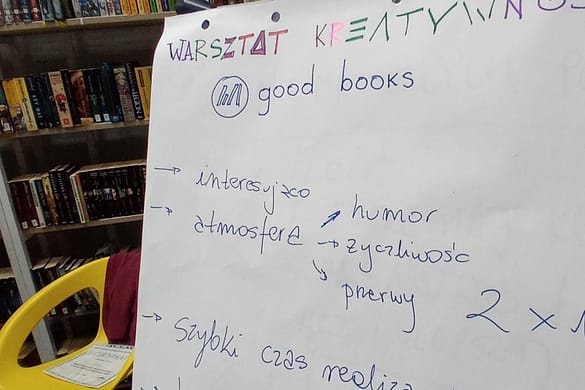 WARSZTAT KREATYWNOŚ
good books
→ interesująco
→ atmosfera
↗ humor
→ życzliwość
↘ przerwy
2 x
→ Szybki czas realiza